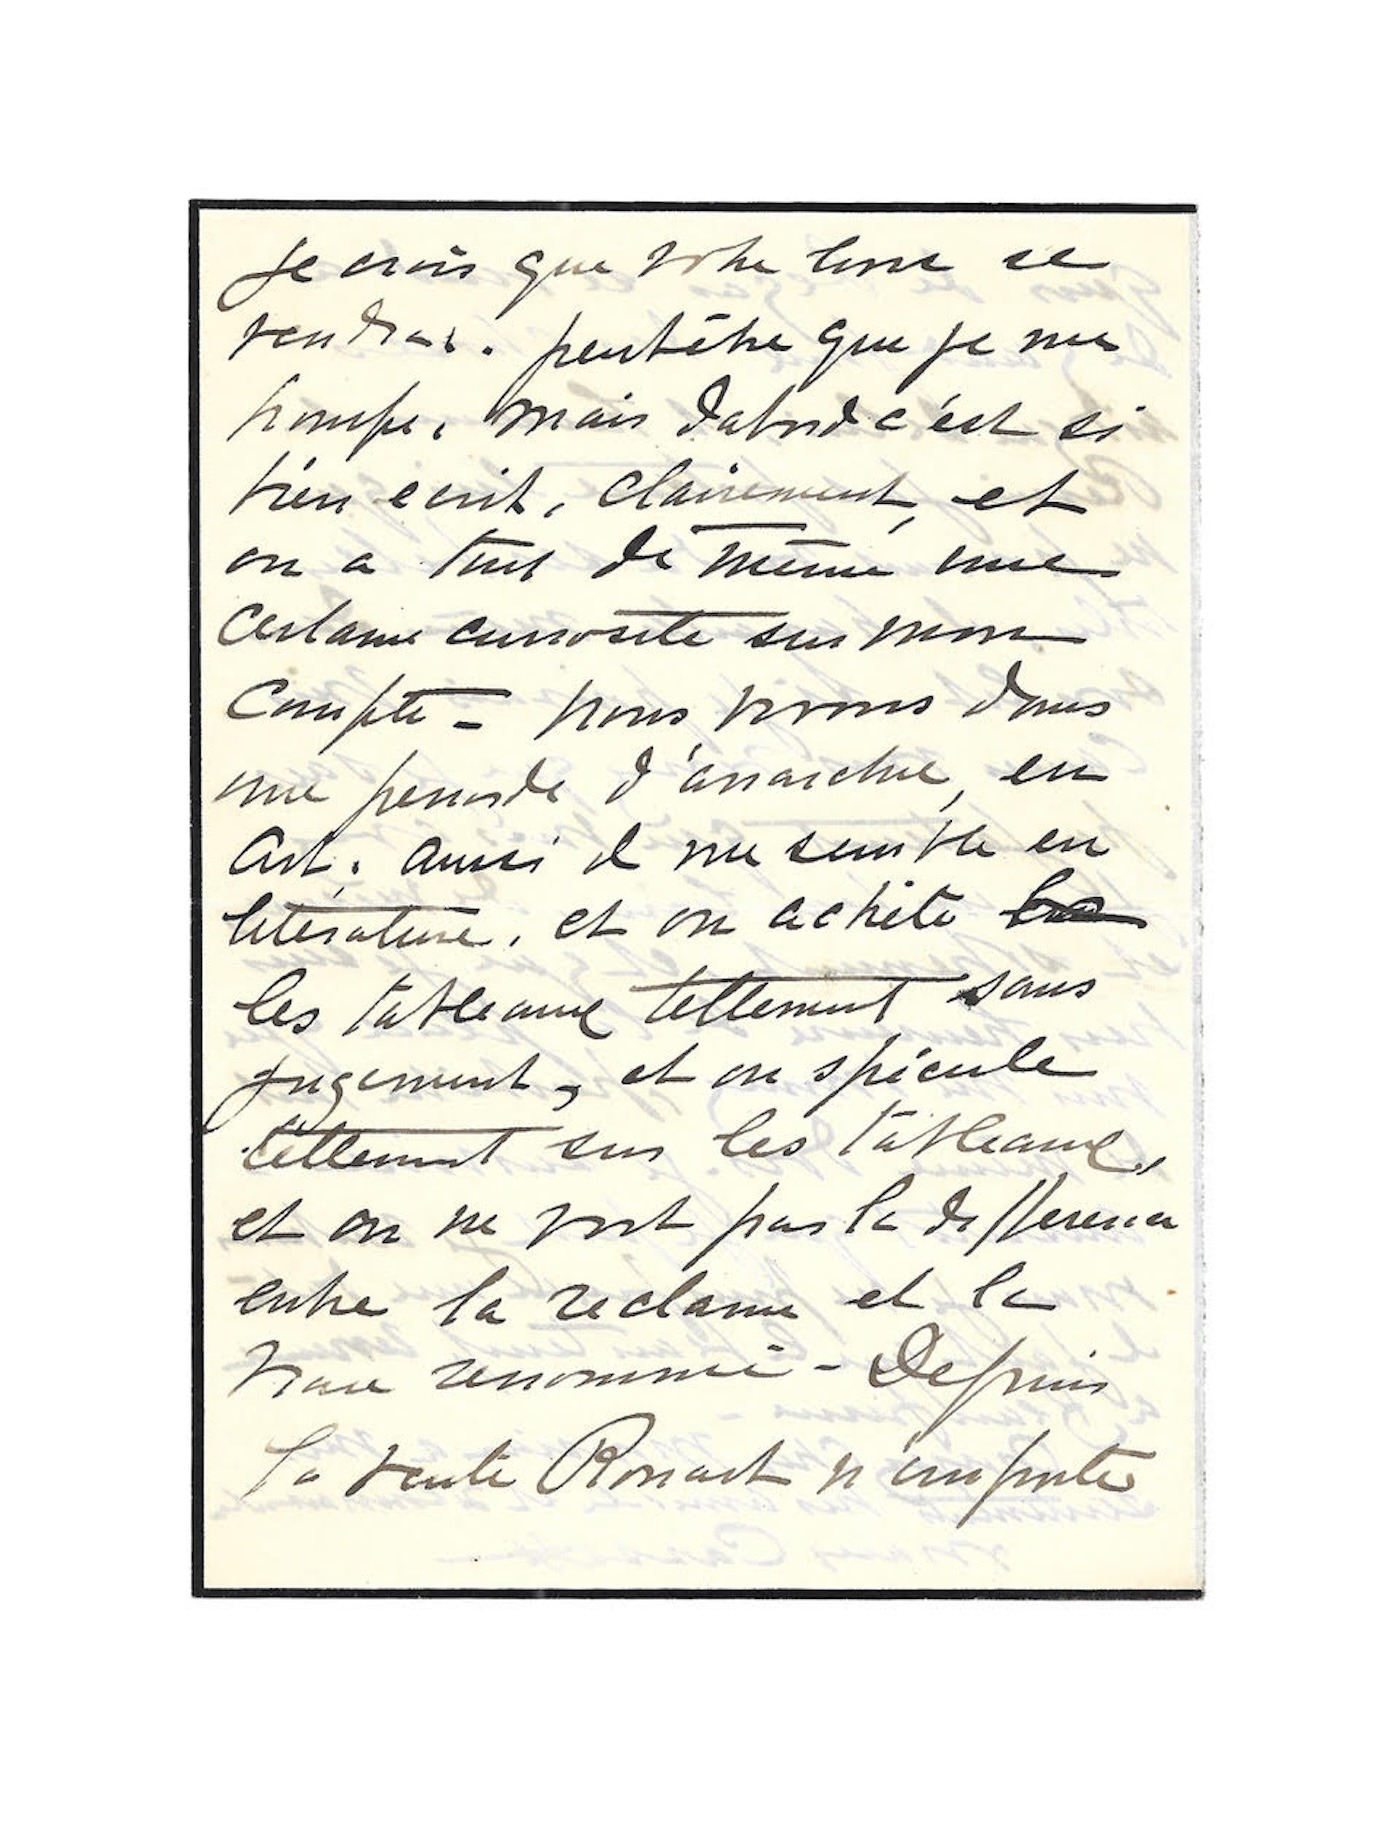 je crois que votre livre se
vendra. peutêtre que je me
trompe. mais dabord c'est si
bien ecrit, clairement, et
on a tout de même une
certaine curiosité sur mon
compte - nous vivons dans
une periode d'anarchie, en
Art. aussi il me semble en
litérature. et on achète
les tableaux tellement sans
jugement, et on spécule
tellement sur les tableaux,
et on ne voit pas la difference
entre la reclame et la
vraie renommée - Depuis
la vente Rouart n'importe